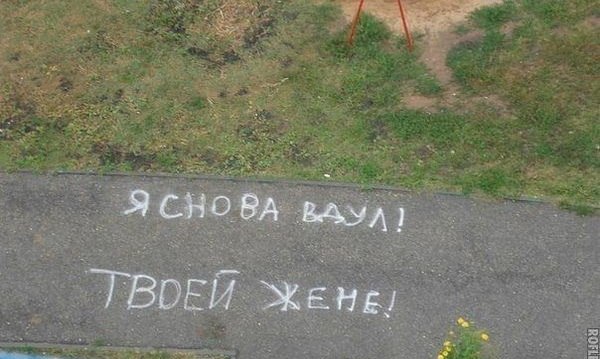 Я СНОВА ВДУЛ!
ТВОЕЙ ЖЕНЕ!
ROFL